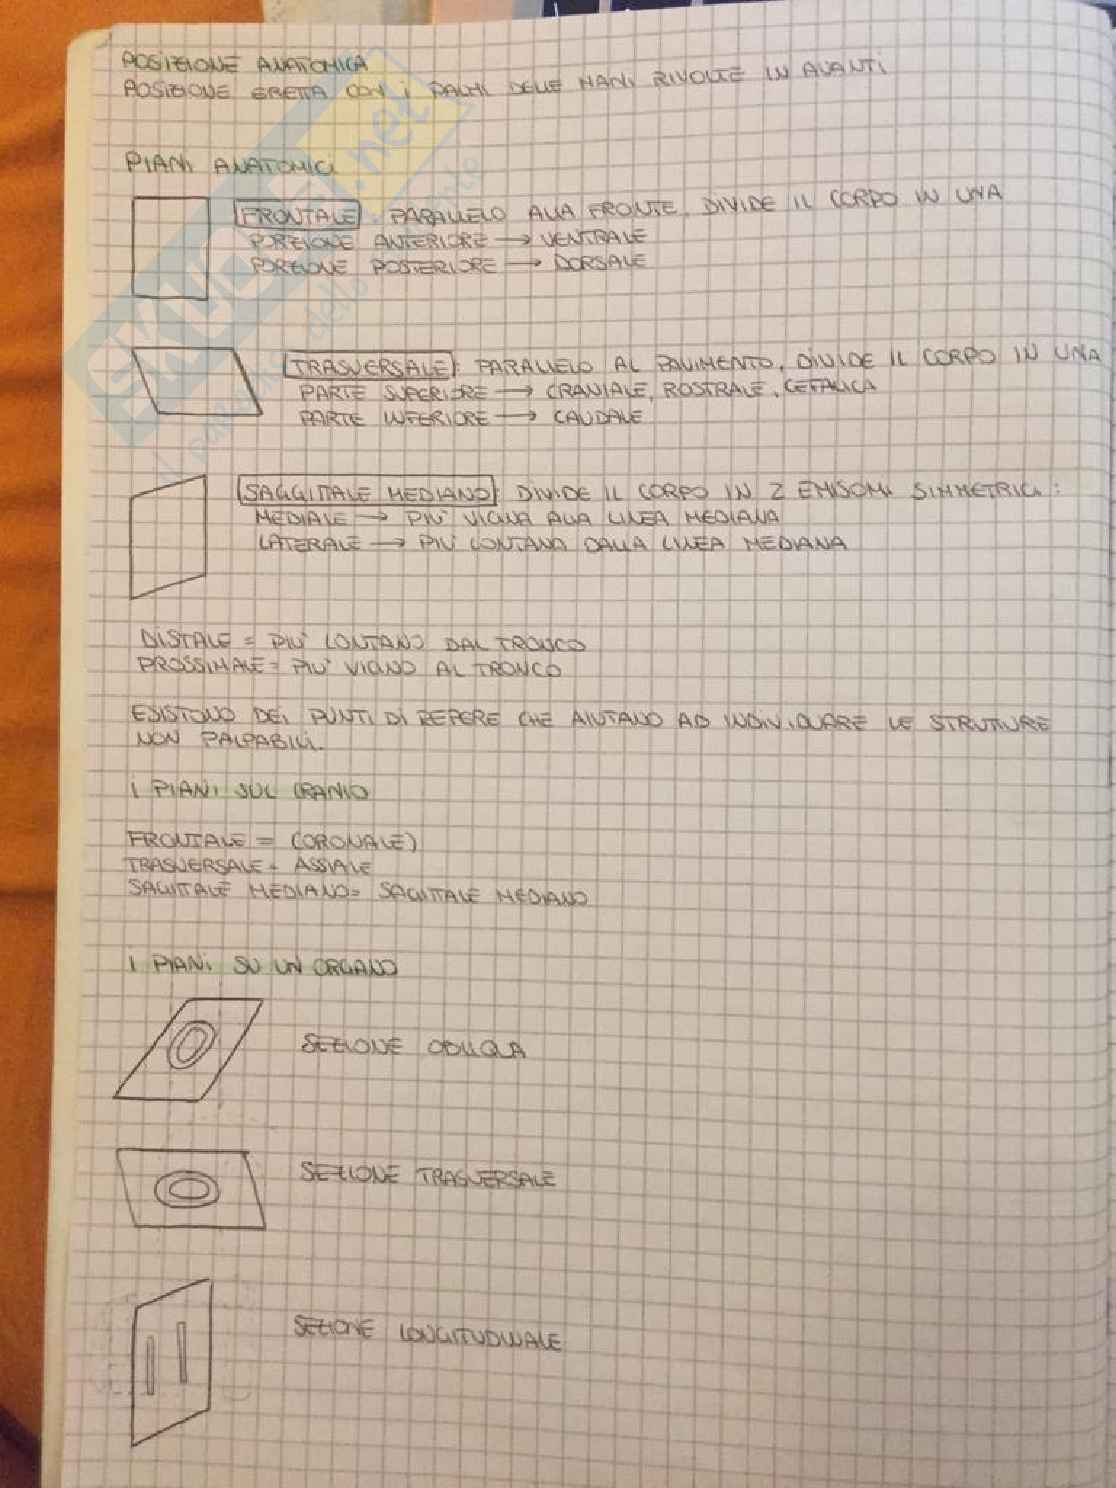 POSIZIONE ANATOMICA
POSIZIONE ERETTA CON I PALMI DELLE MANI RIVOLTE IN AVANTI
PIANI ANATOMICI
FRONTALE: PARALLELO ALLA FRONTE, DIVIDE IL CORPO IN UNA
PORZIONE ANTERIORE → VENTRALE
PORZIONE POSTERIORE → DORSALE
TRASVERSALE: PARALLELO AL PAVIMENTO, DIVIDE IL CORPO IN UNA
PARTE SUPERIORE → CRANIALE, ROSTRALE, CEFALICA
PARTE INFERIORE → CAUDALE
SAGGITTALE MEDIANO: DIVIDE IL CORPO IN 2 EMISOMI SIMMETRICI:
MEDIALE → PIU' VICINA ALLA LINEA MEDIANA
LATERALE → PIU' LONTANA DALLA LINEA MEDIANA
DISTALE = PIU' LONTANO DAL TRONCO
PROSSIMALE = PIU' VICINO AL TRONCO
ESISTONO DEI PUNTI DI REPERE CHE AIUTANO AD INDIVIDUARE LE STRUTTURE
NON PALPABILI.
I PIANI SUL CRANIO
FRONTALE = (CORONALE)
TRASVERSALE = ASSIALE
SAGITTALE MEDIANO = SAGITTALE MEDIANO
I PIANI SU UN ORGANO
SEZIONE OBLIQUA
SEZIONE TRASVERSALE
SEZIONE LONGITUDINALE
SKUOLA.net